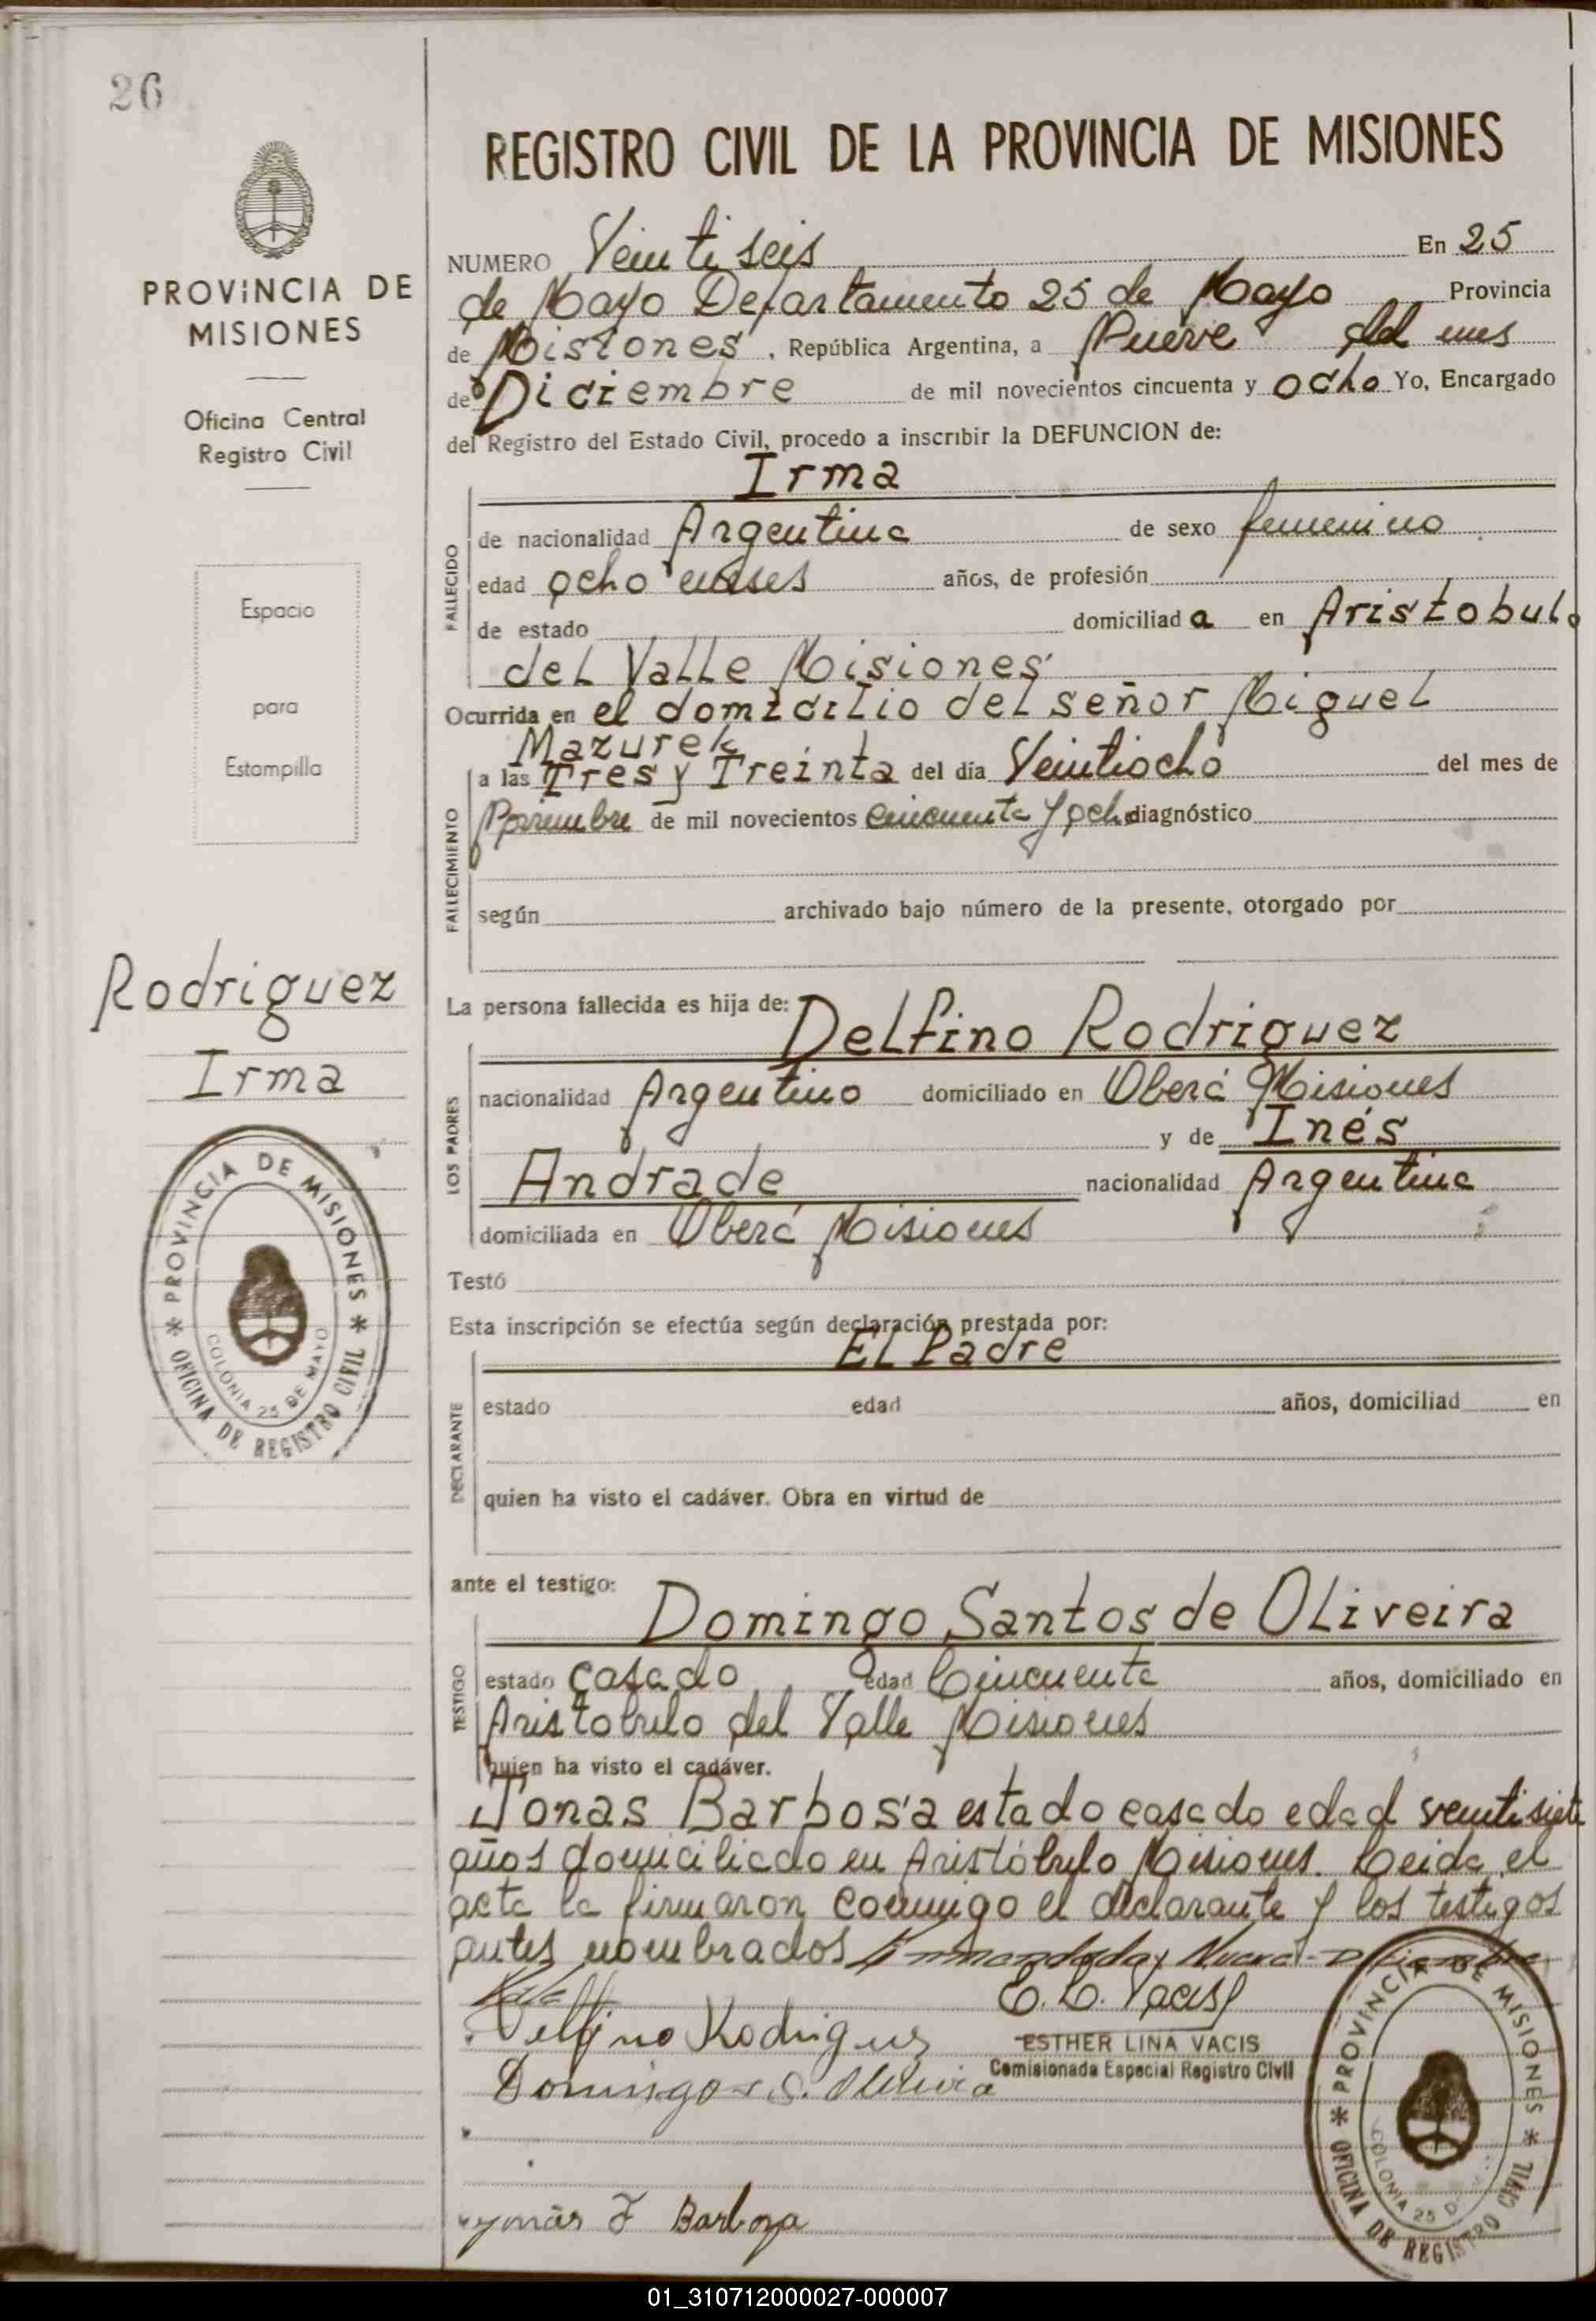 26
REGISTRO CIVIL DE LA PROVINCIA DE MISIONES
PROVINCIA DE
MISIONES
Oficina Central
Registro Civil
Espacio
para
Estampilla
Rodriguez
Irma
PROVINCIA DE MISIONES * OFICINA DE REGISTRO CIVIL *
COLONIA 25 DE MAYO
NUMERO Veinti seis En 25
de Mayo Departamento 25 de Mayo Provincia
de Misiones, República Argentina, a Nueve del mes
de Diciembre de mil novecientos cincuenta y ocho Yo, Encargado
del Registro del Estado Civil, procedo a inscribir la DEFUNCION de:
Irma
FALLECIDO
de nacionalidad Argentina de sexo femenino
edad ocho meses años, de profesión
de estado domiciliad a en Aristobulo
del Valle Misiones
Ocurrida en el domicilio del señor Miguel
Mazurek
FALLECIMIENTO
a las Tres y Treinta del día Veintiocho del mes de
Noviembre de mil novecientos cincuenta y ocho diagnóstico
según archivado bajo número de la presente, otorgado por
La persona fallecida es hija de:
Delfino Rodriguez
LOS PADRES
nacionalidad Argentino domiciliado en Oberá Misiones
y de Inés
Andrade nacionalidad Argentina
domiciliada en Oberá Misiones
Testó
Esta inscripción se efectúa según declaración prestada por:
El Padre
DECLARANTE
estado edad años, domiciliad en
quien ha visto el cadáver. Obra en virtud de
ante el testigo:
Domingo Santos de Oliveira
TESTIGO
estado casado edad Cincuenta años, domiciliado en
Aristobulo del Valle Misiones
quien ha visto el cadáver.
Jonas Barbosa estado casado edad veintisiete
años domiciliado en Aristóbulo Misiones. Leida el
acta la firmaron conmigo el declarante y los testigos
antes nombrados Enmendado: Nueve - Diciembre
Vale
E. L. Vacis
Delfino Rodriguez
ESTHER LINA VACIS
Comisionada Especial Registro Civil
Domingo S. Oliveira
Barboza
PROVINCIA DE MISIONES * OFICINA DE REGISTRO CIVIL *
COLONIA 25 D
01_310712000027-000007